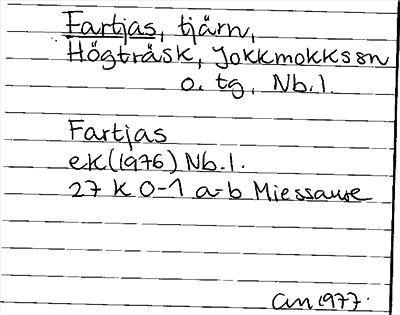 Fartjas, tjärn,
Högträsk, Jokkmokkssn
o. tg, Nb.l.
Fartjas
ek(1976) Nb.l.
27 K 0-1 a-b Miessaure
am 1977.